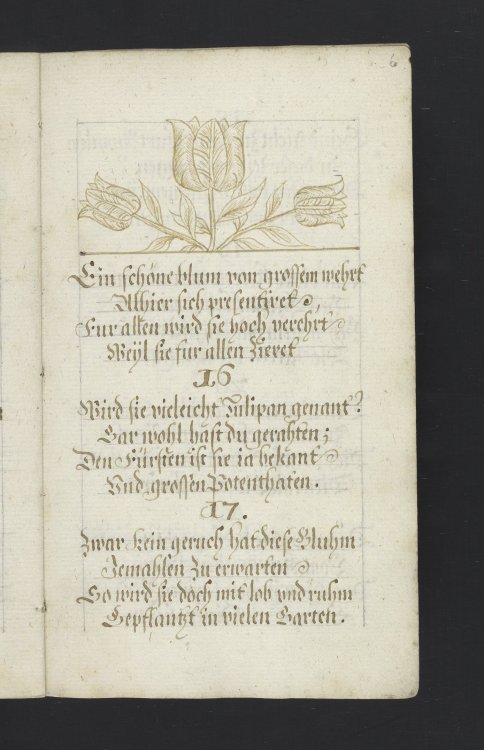 6
Ein schöne blum von grossem wehrt
Alhier sich presentiret,
Fur allen wird sie hoch verehrt
Weÿl sie fur allen Zieret
16
Wird sie vieleicht Tulipan genant?
Gar wohl hast du gerahten;
Den Fürsten ist sie ia bekant
Vnd grossen Potenthaten.
17.
Zwar Kein geruch hat diese Bluhm
Jemahlen zu erwarten
So wird sie doch mit lob vnd ruhm
Gepflantzt in vielen Garten.